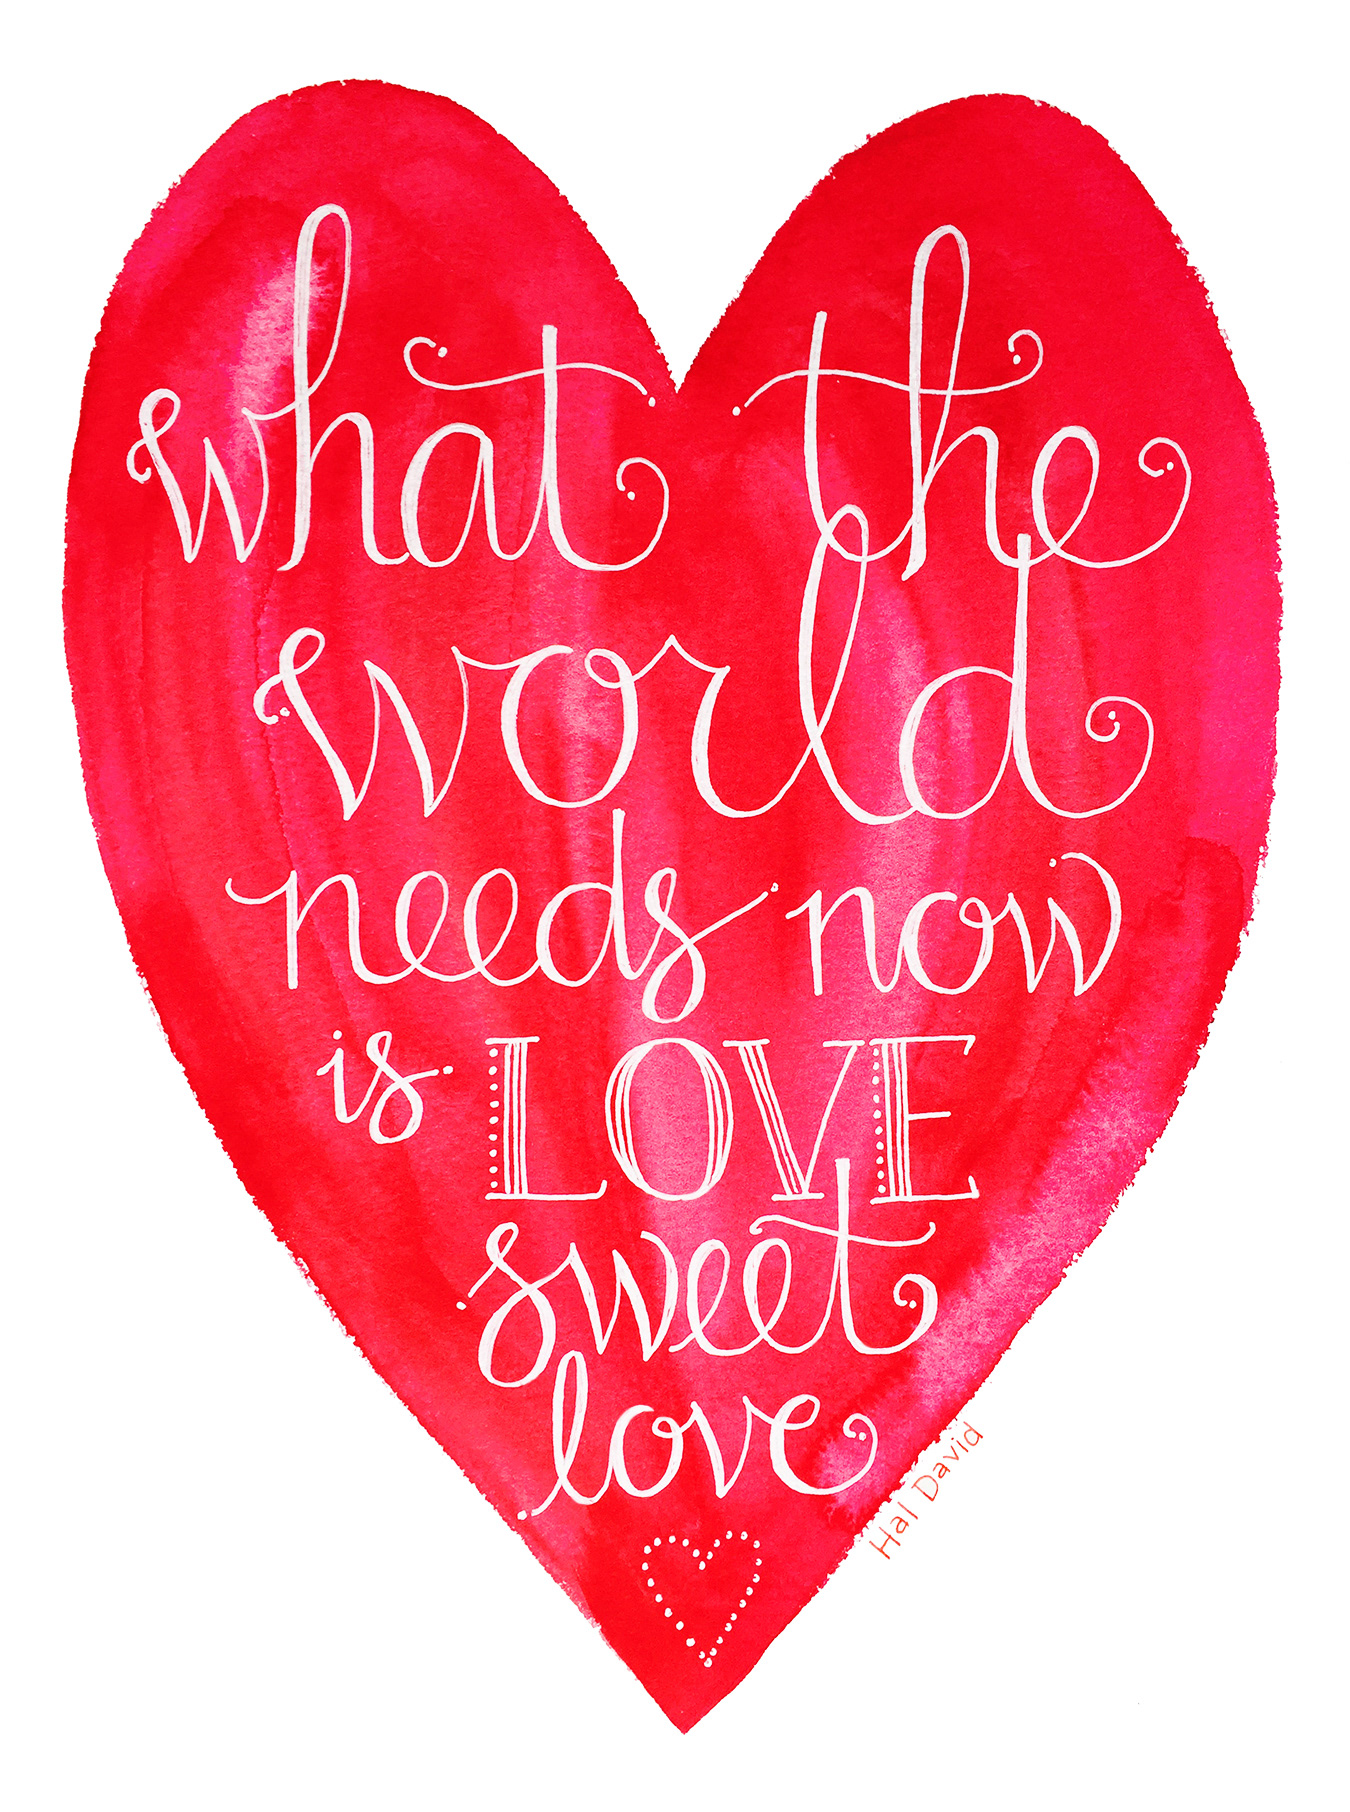 what the
world
needs now
is LOVE
sweet
love
Hal David